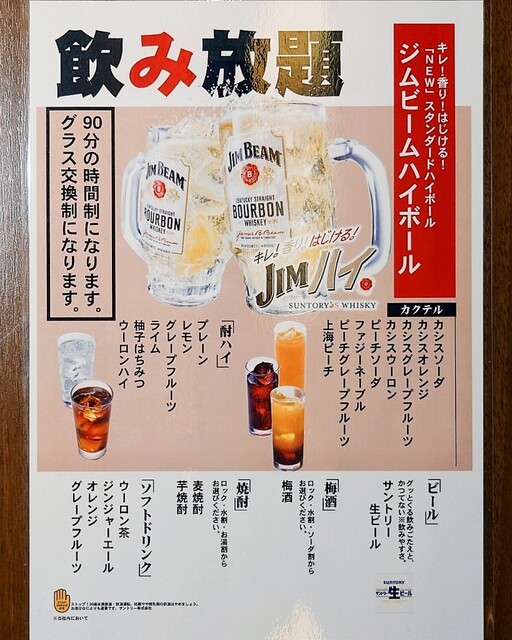 飲み放題
キレ！香り！はじける！
「NEW」スタンダードハイボール
ジムビームハイボール
90分の時間制になります。
グラス交換制になります。
JIM BEAM
KENTUCKY STRAIGHT
BOURBON
WHISKEY
JIM BEAM
KENTUCKY STRAIGHT
BOURBON
WHISKEY
キレ！香り！はじける！
JIMハイ
SUNTORY's WHISKY
カクテル
カシスソーダ
カシスオレンジ
カシスグレープフルーツ
カシスウーロン
ピーチソーダ
ファジーネーブル
ピーチグレープフルーツ
上海ピーチ
「酎ハイ」
プレーン
レモン
グレープフルーツ
ライム
柚子はちみつ
ウーロンハイ
「ビール」
グッとくる飲みごたえと、
かつてない※飲みやすさ。
サントリー
生ビール
SUNTORY
サントリー生ビール
「梅酒」
ロック・水割・ソーダ割から
お選びください。
梅酒
「焼酎」
ロック・水割・お湯割から
お選びください。
麦焼酎
芋焼酎
「ソフトドリンク」
ウーロン茶
ジンジャーエール
オレンジ
グレープフルーツ
ストップ！20歳未満飲酒・飲酒運転。妊娠中や授乳期の飲酒はやめましょう。
お酒はなによりも適量です。サントリー株式会社
※当社内において